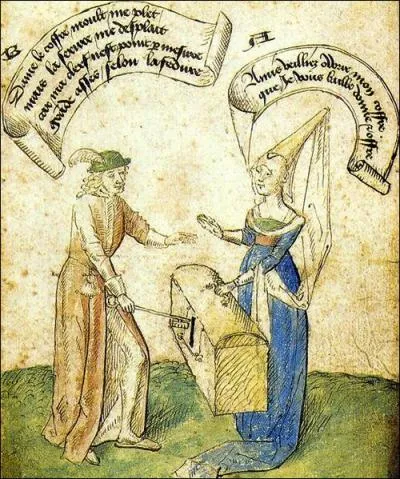 B
Dame le coffre moult me plet
mais la serure me desplait
car ma clef nest point p mesure
asses selon la serure
A
Amis veillies mon coffre
que Je vous baille donne offre